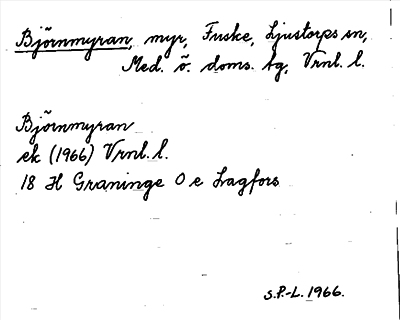 Björnmyran, myr, Fuske, Ljustorps sn,
Med. ö. doms. tg, Vrnl. l.
Björnmyran
ek (1966) Vrnl. l.
18 H Graninge O e Lagfors
S.P.-L. 1966.